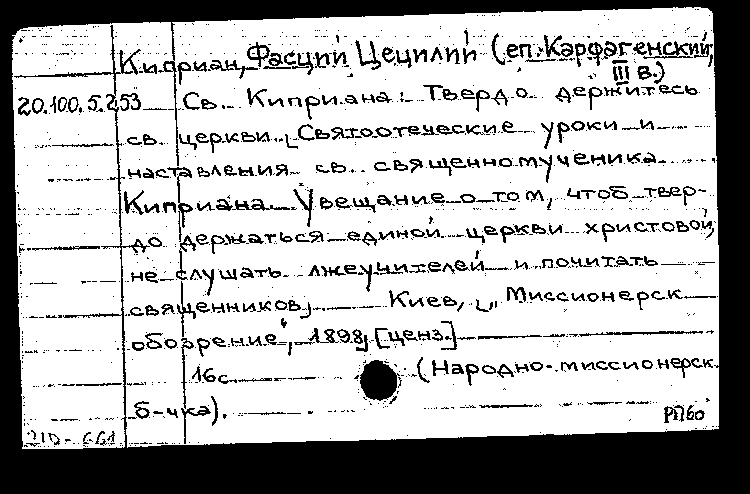 Киприан, Фасций Цецилий (еп. Карфагенский,
III в.)
20.100.5.253 Св. Киприана: Твердо держитесь
св. церкви. [Святоотеческие уроки и
наставления св. священномученика
Киприана. Увещание о том, чтоб твер-
до держаться единой церкви христовой,
не слушать лжеучителей и почитать
священников]. Киев, [„Миссионерск.
обозрение“, 1898] [ценз.]
16с. (Народно-миссионерск.
б-чка).
РП60